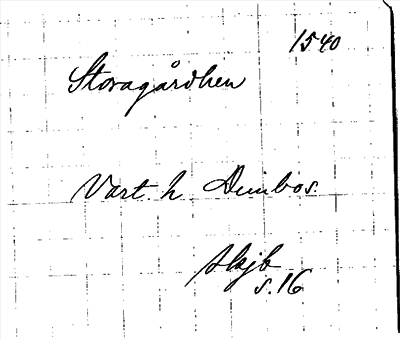 1540
Storagårdhen
Vart. h. Dimbos.
skjb
s. 16